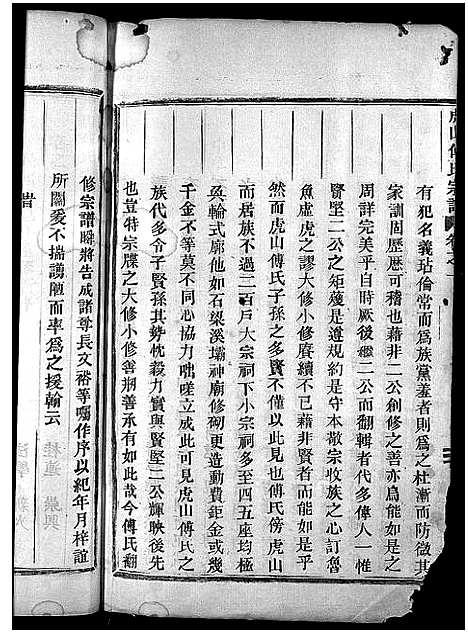 虎山傅氏宗譜
卷之一
有犯名義玷倫常而為族黨羞者則為之杜漸而防微其
家訓固歷歷可稽也藉非二公創修之善亦烏能如是之
周詳完美乎自時厥後繼二公而翻輯者代多偉人一惟
賢堅二公之矩矱是遵規約是守本敬宗收族之心訂魯
魚虛虎之謬大修小修賡續不已藉非賢者而能如是乎
然而虎山傅氏子孫之多賢不僅以此見也傅氏傍虎山
而居族不過三百戶大宗祠下小宗祠多至四五座均極
奐輪式廓他如石梁溪壩神廟修砌更造動費鉅金或幾
千金不等莫不同心協力咄嗟立成此可見虎山傅氏之
族代多令子賢孫其勢忱毅力實與賢堅二公輝映後先
也豈特宗牒之大修小修善剏善承有如此哉今傅氏翻
修宗譜瞬將告成諸尊長文裕等囑作序以紀年月梓誼
所關爰不揣譾陋而率為之援翰云
旹